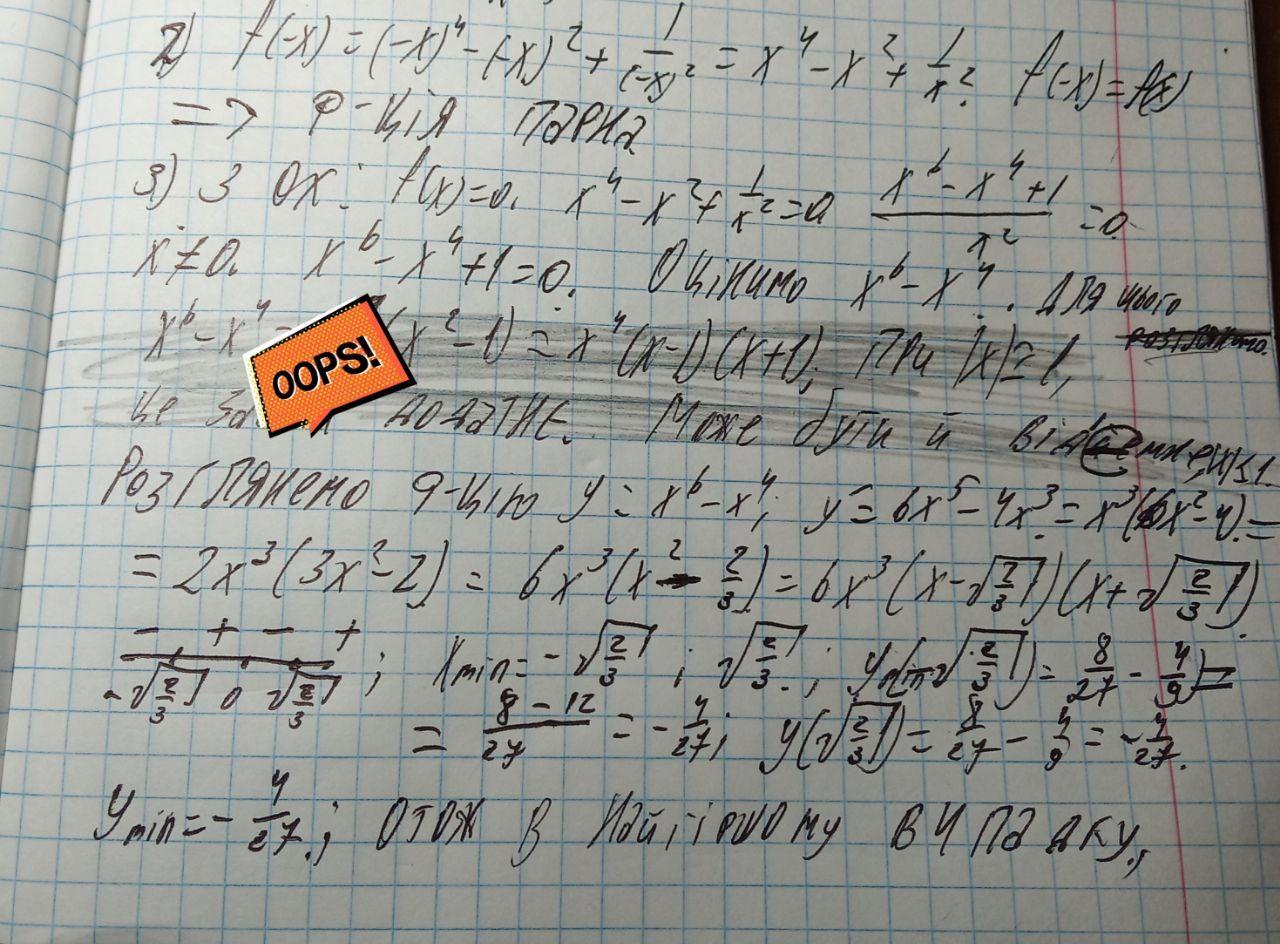 2) f(-x) = (-x)⁴ - (-x)² + 1/(-x)² = x⁴ - x² + 1/x². f(-x) = f(x)
=> Ф-ція парна
3) З OX: f(x)=0. x⁴ - x² + 1/x² = 0 (x⁶ - x⁴ + 1)/x² = 0.
x ≠ 0. x⁶ - x⁴ + 1 = 0. Оцінимо x⁶ - x⁴. Для цього
x⁶ - x⁴ = (x² - 1) = x⁴(x-1)(x+1); При |x| ≥ 1,
це додатнє. Може бути й від'ємне,
OOPS!
Розглянемо ф-цію y = x⁶ - x⁴; y' = 6x⁵ - 4x³ = x³(6x² - 4) =
= 2x³(3x² - 2) = 6x³(x² - 2/3) = 6x³(x - √(2/3))(x + √(2/3)).
- + - +
-√(2/3) 0 √(2/3) ; Xmin = -√(2/3) ; √(2/3). ; y(-√(2/3)) = 8/27 - 4/9 =
= (8 - 12)/27 = -4/27; y(√(2/3)) = 8/27 - 4/9 = -4/27.
Ymin = -4/27.; Отож в найгіршому випадку,